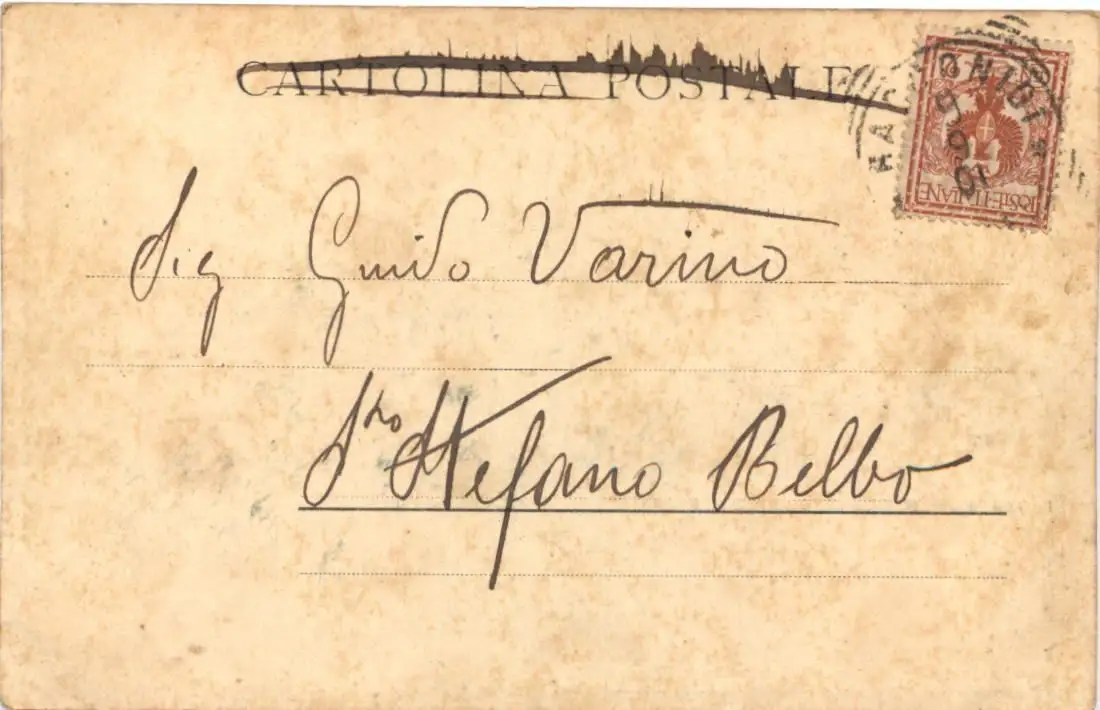 CARTOLINA POSTALE
POSTE ITALIANE
Sig Guido Varino
Sto Stefano Belbo